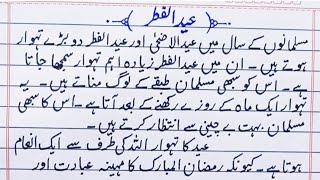 عید الفطر
مسلمانوں کے سال میں عیدالاضحٰی اور عیدالفطر دو بڑے تہوار
ہوتے ہیں۔ ان میں عیدالفطر زیادہ اہم تہوار سمجھا جاتا
ہے۔ اس کو سبھی مسلمان طبقے کے لوگ مناتے ہیں۔ یہ
تہوار ایک ماہ کے روزے رکھنے کے بعد آتا ہے۔ اس کا سبھی
مسلمان بہت بے چینی سے انتظار کرتے ہیں۔
عید کا تہوار اللہ کی طرف سے ایک انعام
ہوتا ہے۔ کیونکہ رمضان المبارک کا مہینہ عبادت اور